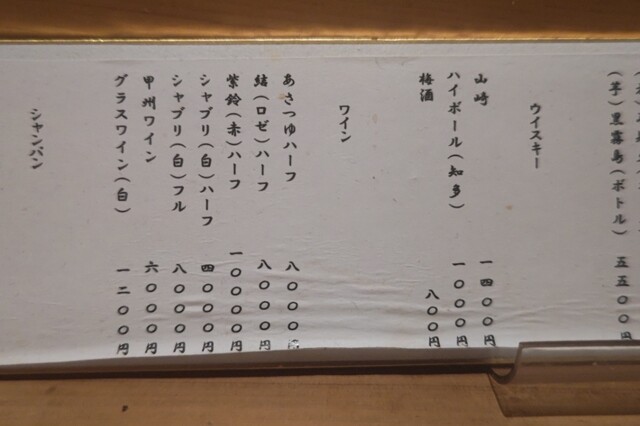 （芋）黒霧島（ボトル）　五五〇〇円
ウイスキー
山崎　一四〇〇円
ハイボール（知多）　一〇〇〇円
梅酒　八〇〇円
ワイン
あさつゆハーフ　八〇〇〇円
結（ロゼ）ハーフ　八〇〇〇円
紫鈴（赤）ハーフ　一〇〇〇〇円
シャブリ（白）ハーフ　四〇〇〇円
シャブリ（白）フル　八〇〇〇円
甲州ワイン　六〇〇〇円
グラスワイン（白）　一二〇〇円
シャンパン